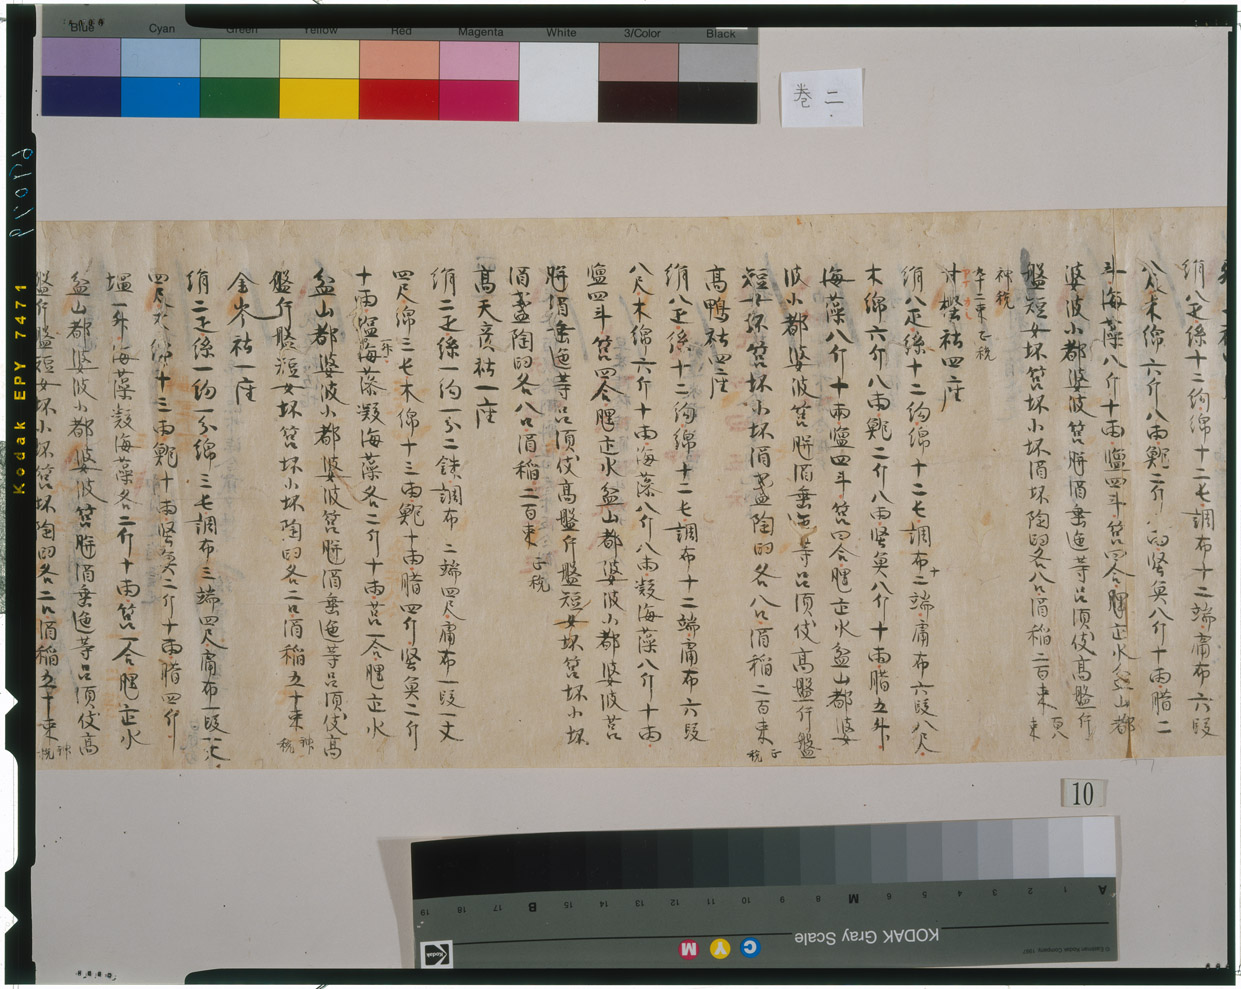 絹八疋絲十二絇綿十二屯調布十二端庸布六段
八尺木綿六斤八兩鰒二斤 堅魚八斤十兩腊二
斗海藻八斤十兩塩四斗筥四合𤭖缶水盆山都
婆波小都婆波筥瓶酒垂匜等呂須伎高盤片
盤短女坏筥坏小坏酒坏陶臼各八口酒稲二百束
神税
正税
社四座
絹八疋絲十二絇綿十二屯調布二端庸布六段八尺
木綿六斤八兩鰒二斤八兩堅魚八斤十兩腊五升
海藻八斤十兩塩四斗筥四合𤭖缶水盆山都婆
波小都婆波筥瓶酒垂匜等呂須伎高盤片盤
短女坏筥坏小坏酒盞陶臼各八口酒稲二百束 正税
高鴨社四座
絹八疋絲十二絇綿十二屯調布十二端庸布六段
八尺木綿六斤十兩海藻八斤八兩凝海藻八斤十兩
塩四斗筥四合𤭖缶水盆山都婆波小都婆波筥
瓶酒垂匜等呂須伎高盤片盤短女坏筥坏小坏
酒盞陶臼各八口酒稲二百束 正税
高天彦社一座
絹二疋絲一絇一分二銖調布二端四尺庸布一段一丈
四尺綿三屯木綿十三兩鰒十兩腊四斤堅魚二斤
十兩塩海藻凝海藻各二斤十兩筥一合𤭖缶水
盆山都婆波小都婆波筥瓶酒垂匜等呂須伎高
盤片盤短女坏筥坏小坏陶臼各二口酒稲五十束 神税
金岑社一座
絹二疋絲一絇一分綿三屯調布三端四尺庸布一段一丈
四尺木綿十三兩鰒十兩堅魚二斤十兩腊四斤
塩一升海藻凝海藻各二斤十兩筥一合𤭖缶水
盆山都婆波小都婆波筥瓶酒垂匜等呂須伎高
盤片盤短女坏小坏筥坏陶臼各二口酒稲五十束 神税
巻二
10
Blue Cyan Green Yellow Red Magenta White 3/Color Black
Kodak EPY 7471
KODAK Gray Scale
C Y M
Kodak
A 1 2 3 4 5 6 M 8 9 10 11 12 13 14 15 B 17 18 19